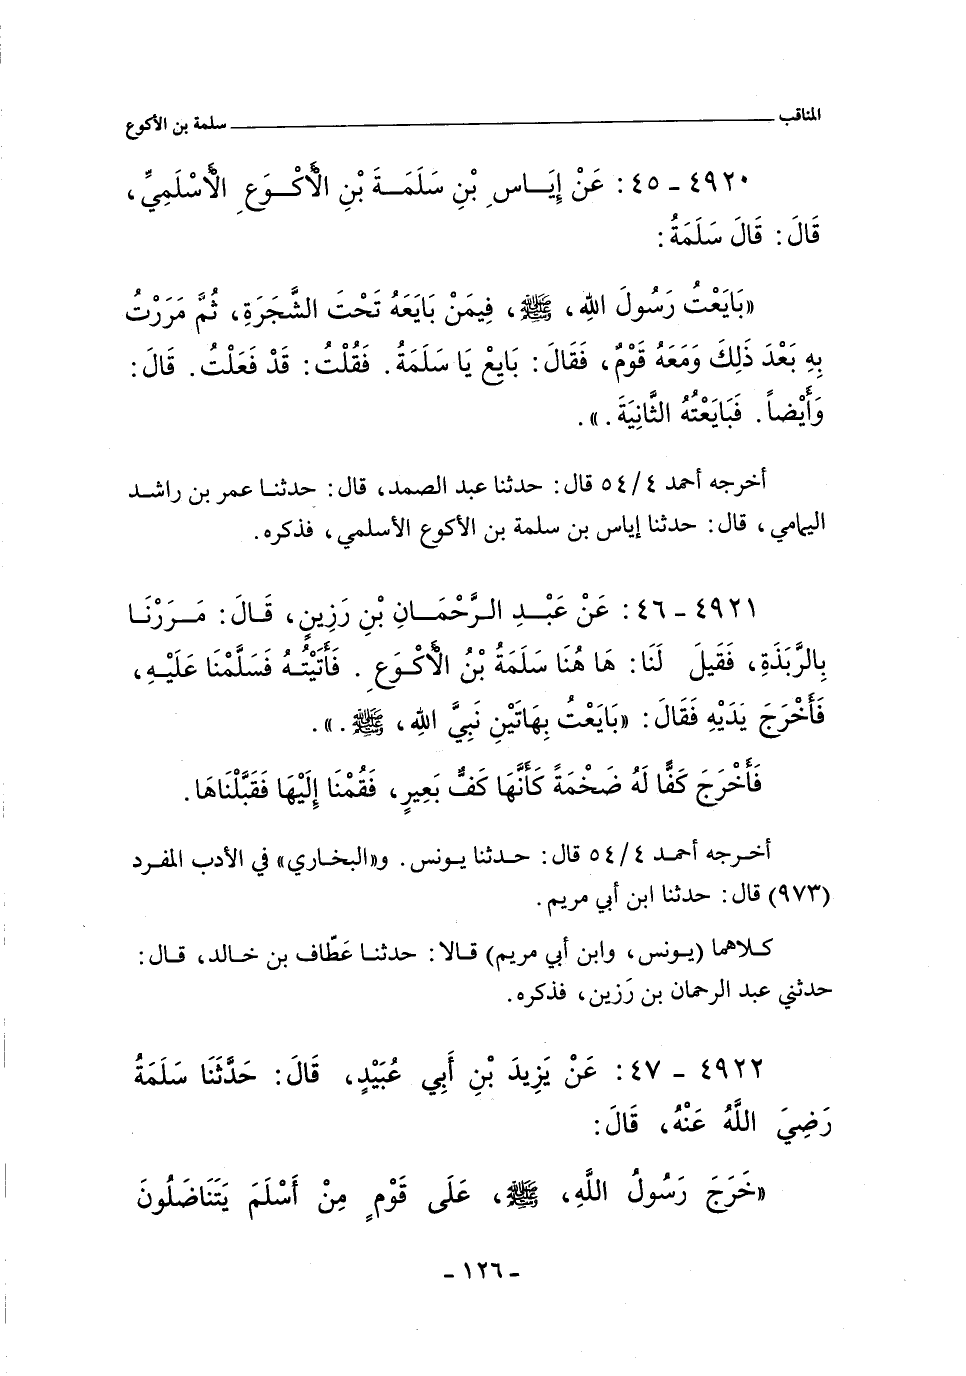 المناقب ــــــ سلمة بن الأكوع
٤٩٢٠ ـ ٤٥ : عَنْ إِيَـاسِ بْنِ سَلَمَـةَ بْنِ الْأَكْـوَعِ الْأَسْلَمِيِّ،
قَالَ : قَالَ سَلَمَةُ :
«بَايَعْتُ رَسُولَ اللهِ، ﷺ، فِيمَنْ بَايَعَهُ تَحْتَ الشَّجَرَةِ، ثُمَّ مَرَرْتُ
بِهِ بَعْدَ ذَلِكَ وَمَعَهُ قَوْمٌ، فَقَالَ : بَايِعْ يَا سَلَمَةُ . فَقُلْتُ : قَدْ فَعَلْتُ . قَالَ :
وَأَيْضاً . فَبَايَعْتُهُ الثَّانِيَةَ . » .
أخرجه أحمد ٤/ ٥٤ قال : حدثنا عبد الصمد، قال : حدثنـا عمر بن راشـد
اليمامي، قال : حدثنا إياس بن سلمة بن الأكوع الأسلمي، فذكره .
٤٩٢١ ـ ٤٦ : عَنْ عَبْـدِ الـرَّحْمَـانِ بْنِ رَزِينٍ، قَـالَ : مَـرَرْنَـا
بِالرَّبَذَةِ، فَقِيلَ لَنَا : هَا هُنَا سَلَمَةُ بْنُ الْأَكْـوَعِ . فَأَتَيْتُـهُ فَسَلَّمْنَا عَلَيْـهِ،
فَأَخْرَجَ يَدَيْهِ فَقَالَ : «بَايَعْتُ بِهَاتَيْنِ نَبِيَّ اللهِ، ﷺ . » .
فَأَخْرَجَ كَفًّا لَهُ ضَخْمَةً كَأَنَّهَا كَفُّ بَعِيرٍ، فَقُمْنَا إِلَيْهَا فَقَبَّلْنَاهَا .
أخـرجه أحمـد ٤/ ٥٤ قال : حـدثنا يـونس . و«البخـاري» في الأدب المفـرد
(٩٧٣) قال : حدثنا ابن أبي مريم .
كـلاهما (يـونس، وابن أبي مريم) قـالا : حدثنـا عَطَّاف بن خـالد، قـال :
حدثني عبد الرحمان بن رَزين، فذكره .
٤٩٢٢ ـ ٤٧ : عَنْ يَزِيدَ بْنِ أَبِي عُبَيْدٍ، قَالَ : حَدَّثَنَا سَلَمَةُ
رَضِيَ اللَّهُ عَنْهُ، قَالَ :
«خَرَجَ رَسُولُ اللَّهِ، ﷺ، عَلَى قَوْمٍ مِنْ أَسْلَمَ يَتَنَاضَلُونَ
ـ ١٢٦ ـ